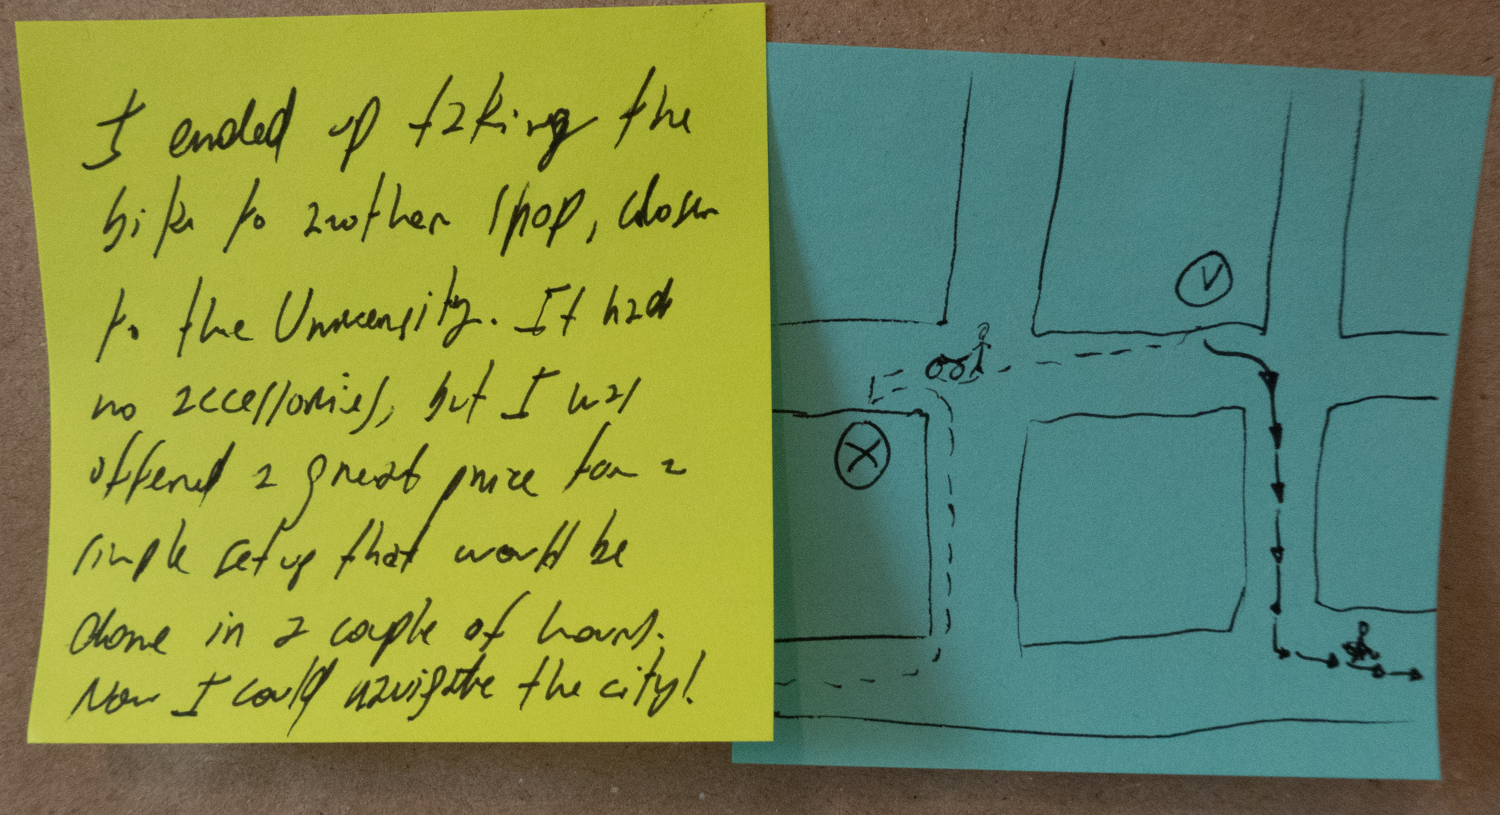 I ended up taking the
bike to another shop, closer
to the University. It had
no accessories, but I was
offered a great price for a
simple setup that would be
done in a couple of hours.
Now I could navigate the city!
V
X